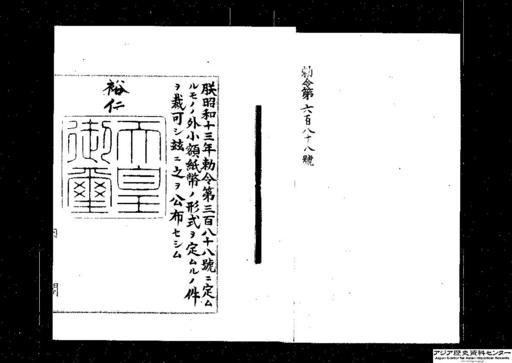 勅令第六百八十八號
朕昭和十三年勅令第三百八十八號ニ定ム
ルモノノ外小額紙幣ノ形式ヲ定ムルノ件
ヲ裁可シ玆ニ之ヲ公布セシム
裕仁
天皇
御璽
内閣
アジア歴史資料センター
Japan Center for Asian Historical Records